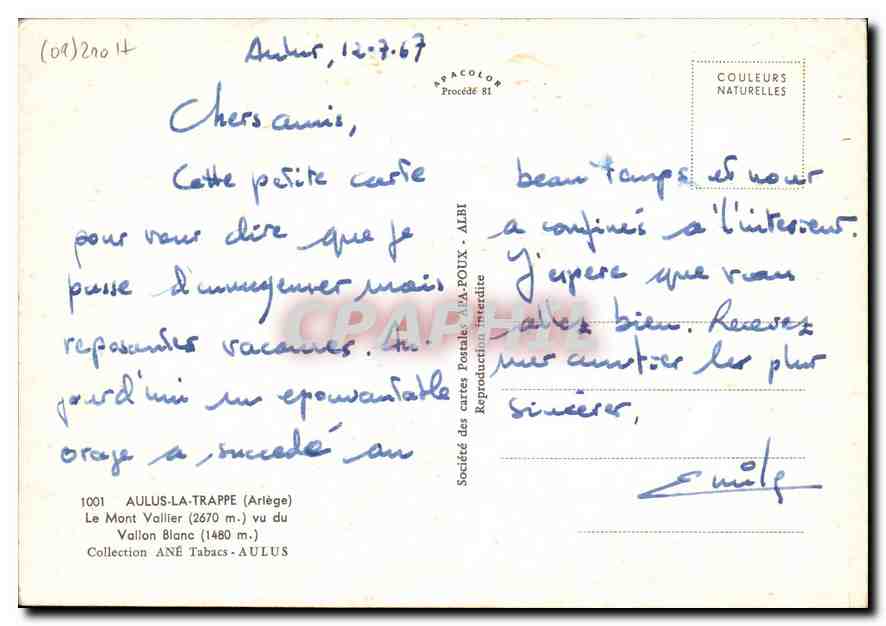 (09) 210 H
Aulus, 12.7.67
APACOLOR
Procédé 81
COULEURS
NATURELLES
Chers amis,
Cette petite carte
pour vous dire que je
passe d'ennuyeuses mais
reposantes vacances. Au-
jourd'hui un epouvantable
orage a succédé au
beau temps et nous
a confinés a l'interieur.
J'espere que vous
allez bien. Recevez
mes amitiés les plus
sincères,
Emile
1001 AULUS-LA-TRAPPE (Ariège)
Le Mont Vallier (2670 m.) vu du
Vallon Blanc (1480 m.)
Collection ANÉ Tabacs - AULUS
Société des cartes Postales APA-POUX - ALBI
Reproduction interdite
CPAPHIL